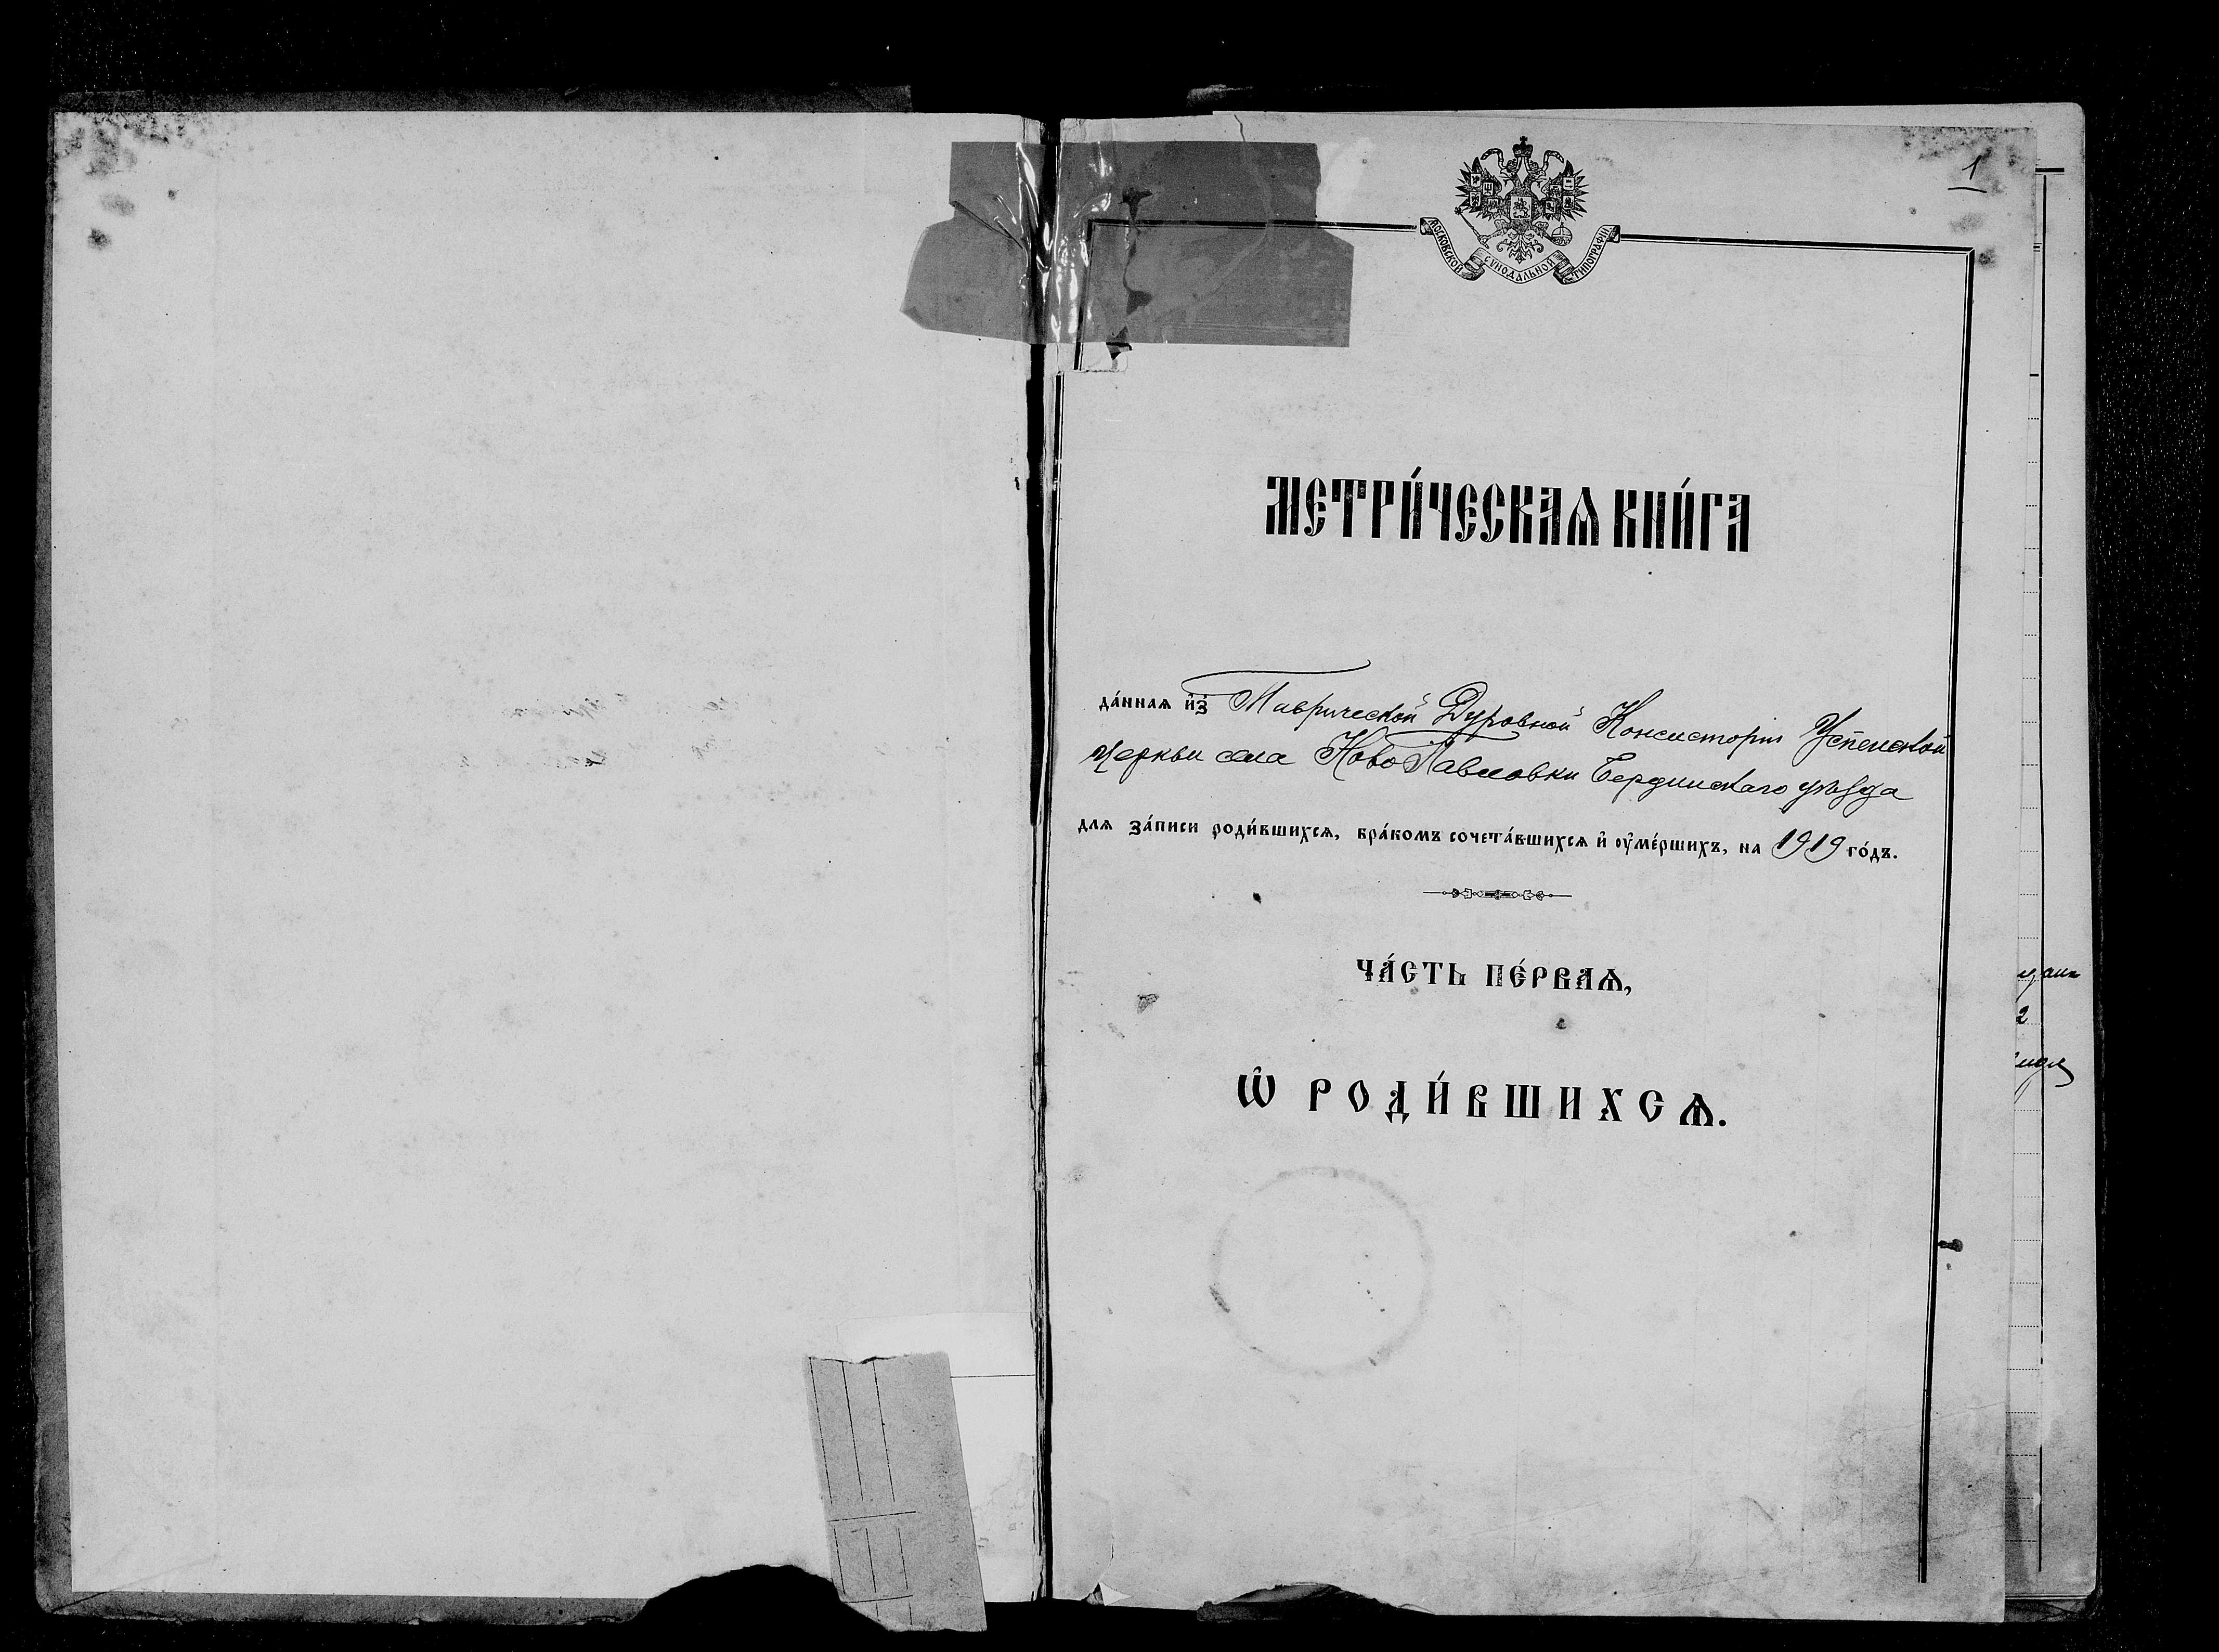 1
МОСКОВСКОЙ СѴНОДАЛЬНОЙ ТИПОГРАФІИ
МЕТРИ́ЧЕСКАѦ КНИ́ГА
да́ннаѧ и҆з̾ Таврической Духовной Консисторіи Успенской
Церкви села НовоПавловки Бердянскаго уѣзда
длѧ за́писи роди́вшихсѧ, бра́комъ сочета́вшихсѧ и҆ ᲂу҆ме́ршихъ, на 1919 го́дъ.
ЧА́СТЬ ПЕ́РВАѦ,
Ѡ҆ РОДИ́ВШИХСѦ.
2